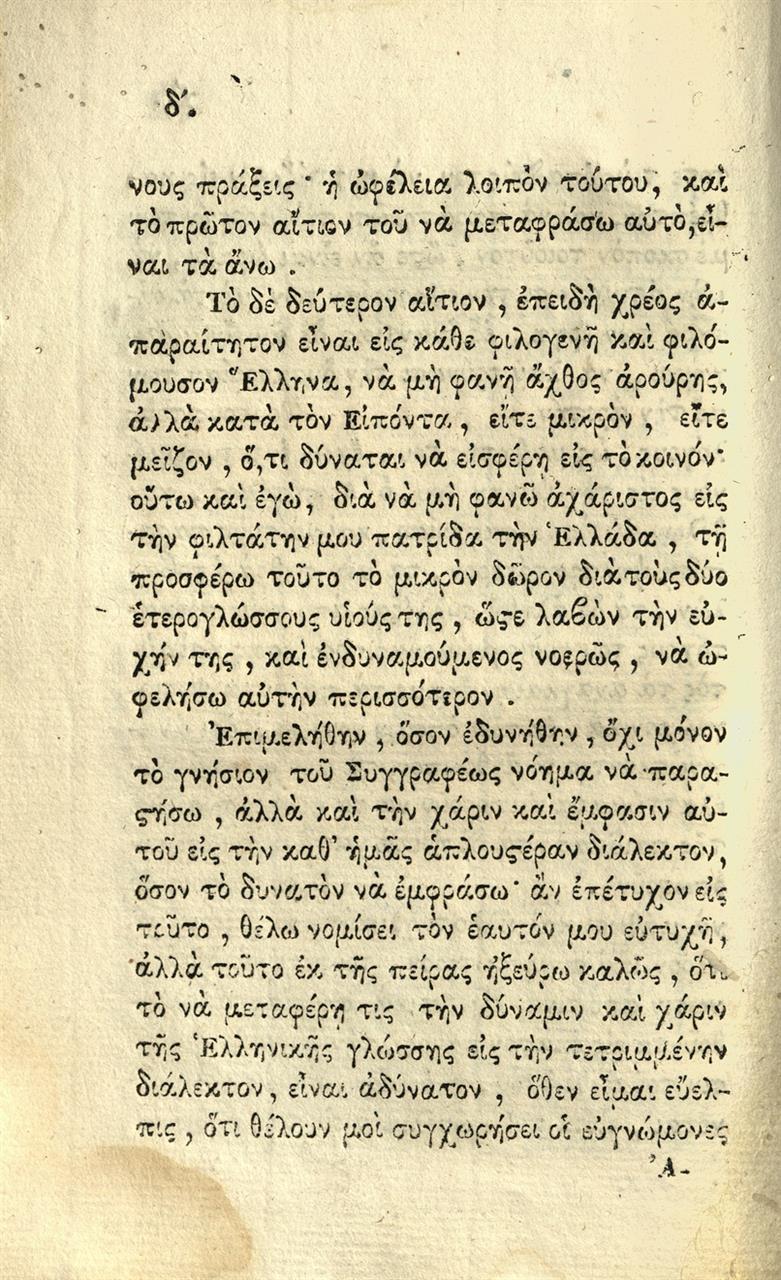 δʹ.
νους πράξεις · ἡ ὠφέλεια λοιπὸν τούτου, καὶ
τὸ πρῶτον αἴτιον τοῦ νὰ μεταφράσω αὐτὸ, εἶ-
ναι τὰ ἄνω .
Τὸ δὲ δεύτερον αἴτιον , ἐπειδὴ χρέος ἀ-
παραίτητον εἶναι εἰς κάθε φιλογενῆ καὶ φιλό-
μουσον Ἕλληνα, νὰ μὴ φανῇ ἄχθος ἀρούρης,
ἀλλὰ κατὰ τὸν Εἰπόντα , εἴτε μικρὸν , εἴτε
μεῖζον , ὅ,τι δύναται νὰ εἰσφέρῃ εἰς τὸ κοινόν·
οὕτω καὶ ἐγὼ, διὰ νὰ μὴ φανῶ ἀχάριστος εἰς
τὴν φιλτάτην μου πατρίδα τὴν Ἑλλάδα , τῇ
προσφέρω τοῦτο τὸ μικρὸν δῶρον διὰ τοὺς δύο
ἑτερογλώσσους υἱούς της , ὥϛε λαβὼν τὴν εὐ-
χήν της , καὶ ἐνδυναμούμενος νοερῶς , νὰ ὠ-
φελήσω αὐτὴν περισσότερον .
Ἐπιμελήθην , ὅσον ἐδυνήθην , ὄχι μόνον
τὸ γνήσιον τοῦ Συγγραφέως νόημα νὰ παρα-
ϛήσω , ἀλλὰ καὶ τὴν χάριν καὶ ἔμφασιν αὐ-
τοῦ εἰς τὴν καθ’ ἡμᾶς ἁπλουϛέραν διάλεκτον,
ὅσον τὸ δυνατὸν νὰ ἐμφράσω· ἂν ἐπέτυχον εἰς
τοῦτο , θέλω νομίσει τὸν ἑαυτόν μου εὐτυχῆ,
ἀλλὰ τοῦτο ἐκ τῆς πείρας ἠξεύρω καλῶς , ὅτι
τὸ νὰ μεταφέρῃ τις τὴν δύναμιν καὶ χάριν
τῆς Ἑλληνικῆς γλώσσης εἰς τὴν τετριμμένην
διάλεκτον, εἶναι ἀδύνατον , ὅθεν εἶμαι εὔελ-
πις , ὅτι θέλουν μοὶ συγχωρήσει οἱ εὐγνώμονες
Ἀ-